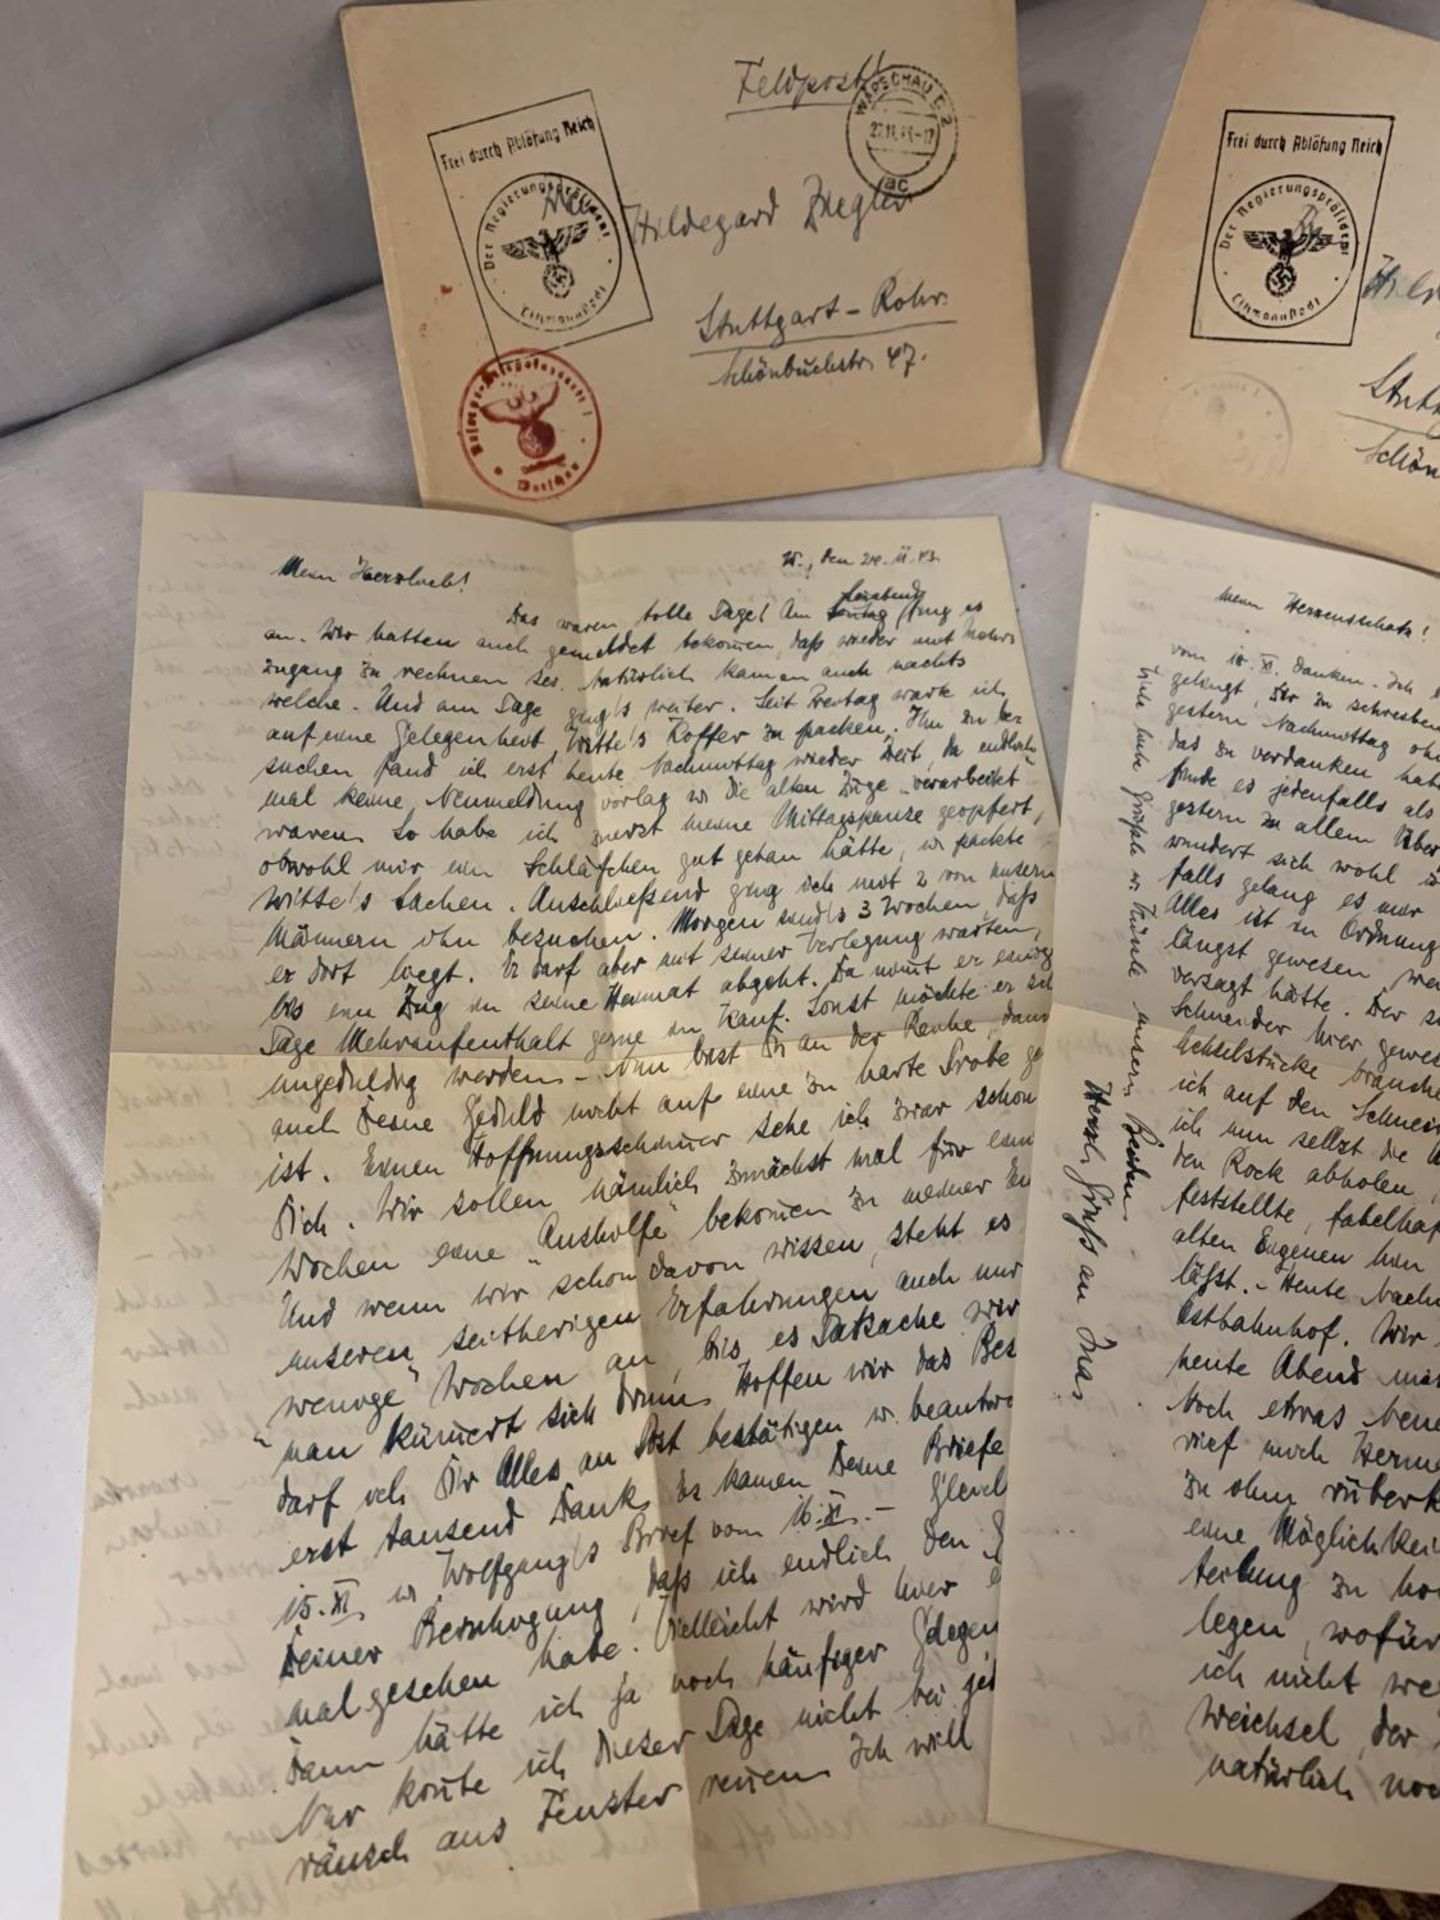 Feldpost!
WARSCHAU C2
ac
Frei durch Ablösung Reich
Der Regierungspräsident
Litzmannstadt
Hildegard Ziegler
Stuttgart-Rohr.
Schönbuchstr. 47.
Frei durch Ablösung Reich
Der Regierungspräsident
Litzmannstadt
Stuttg
Schön
Mein Herzlieb!
W., den 24. 11. 43.
Das waren tolle Tage! Am fing es
an. Wir hatten auch gemeldet bekommen, daß wieder mit Mehr-
zugang zu rechnen sei. Natürlich kamen auch nachts
welche. Und am Tage ging's weiter. Seit Freitag warte ich
auf eine Gelegenheit, Witte's Koffer zu packen. Ihn zu be-
suchen fand ich erst heute Nachmittag wieder Zeit, da endlich
mal keine Neumeldung vorlag u. die alten Züge verarbeitet
waren. So habe ich zuerst meine Mittagspause geopfert,
obwohl mir ein Schläfchen gut getan hätte, u. packte
Witte's Sachen. Anschließend ging ich mit 2 von unsern
Männern ihn besuchen. Morgen sind's 3 Wochen, daß
er dort liegt. Er darf aber mit seiner Verlegung warten,
bis ein Zug in seine Heimat abgeht. Da nimmt er einige
Tage Mehraufenthalt gerne in Kauf. Sonst möchte er sch
ungeduldig werden. - Nun bist Du an der Reihe, dam
auch Deine Geduld nicht auf eine zu harte Probe ge
ist. Einen Hoffnungsschimmer sehe ich zwar schon
Dich. Wir sollen nämlich zunächst mal für ein
Wochen eine „Aushilfe" bekommen zu meiner En
Und wenn wir schon davon wissen, steht es
unseren seitherigen Erfahrungen auch nur
wenige Wochen an, bis es Tatsache wir
"man kümmert sich drum. Hoffen wir das Bes
darf ich Dir Alles an Post bestätigen u. beantwo
erst tausend Dank. Es kamen Deine Briefe
15. XI. u. Wolfgang's Brief vom 16. XI. - Gleich
Deiner Beruhigung, daß ich endlich den
mal gesehen habe. Vielleicht wird hier
Dann hätte ich ja noch häufiger Gelegen
Nur konnte ich dieser Tage nicht bei je
räusch ans Fenster rennen. Ich will
Mein Herzensschatz!
vom 18. XI. danken. Ich
gelingt, Dir zu schreiben
gestern Nachmittag oh
das zu verdanken hab
finde es jedenfalls als
gestern zu allem Über
wundert sich wohl
falls gelang es mir
Alles ist in Ordnung
längst gewesen we
versagt hätte. Der
Schneider hier gewes
Achselstücke brauche
ich auf den Schneid
ich nun selbst die
den Rock abholen,
feststellte, fabelhaf
alten Eugenen hin
läßt. - Heute Nachm
Ostbahnhof. Wir
heute Abend
Noch etwas Neue
rief mich
zu ihm rüberk
eine Möglichkei
teilung zu ko
legen, wofür
ich nicht we
Weichsel, der
natürlich no
unsern Beiden.
Herzl. Grüße an Inas